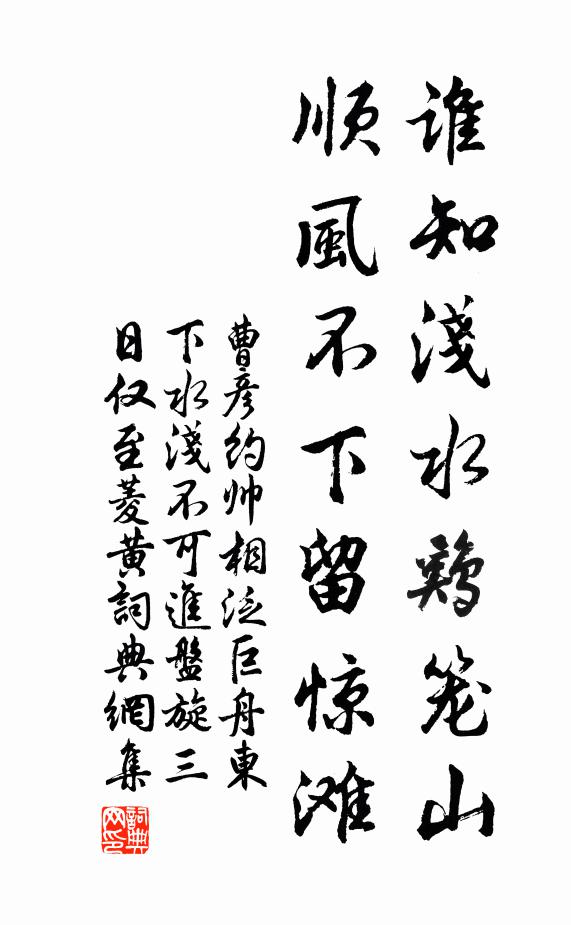 誰知淺水鷄笼山
順風不下留惊滩
曹彦约帅相泛巨舟東
下水淺不可進盤旋三
日仅至菱黄詞典網集
詞典网印